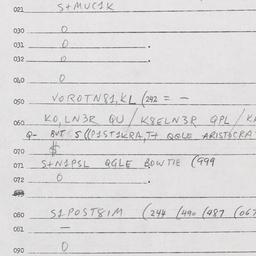 021 S+MUC1K
030 O
031 O .
032 O .
040 O
050 VOROTN81,KL (242 = -
060 KO,LN3R QU / K8ELN3R QPL /
Q- BUT S ((P1ST1KRA,T+ QGLE ARISTOCRA
070 $
071 S+N1PSL QGLE BOWTIE (999
072 O .
080 S1POST8IM (244 (490 (987 (067
081 —
090 O